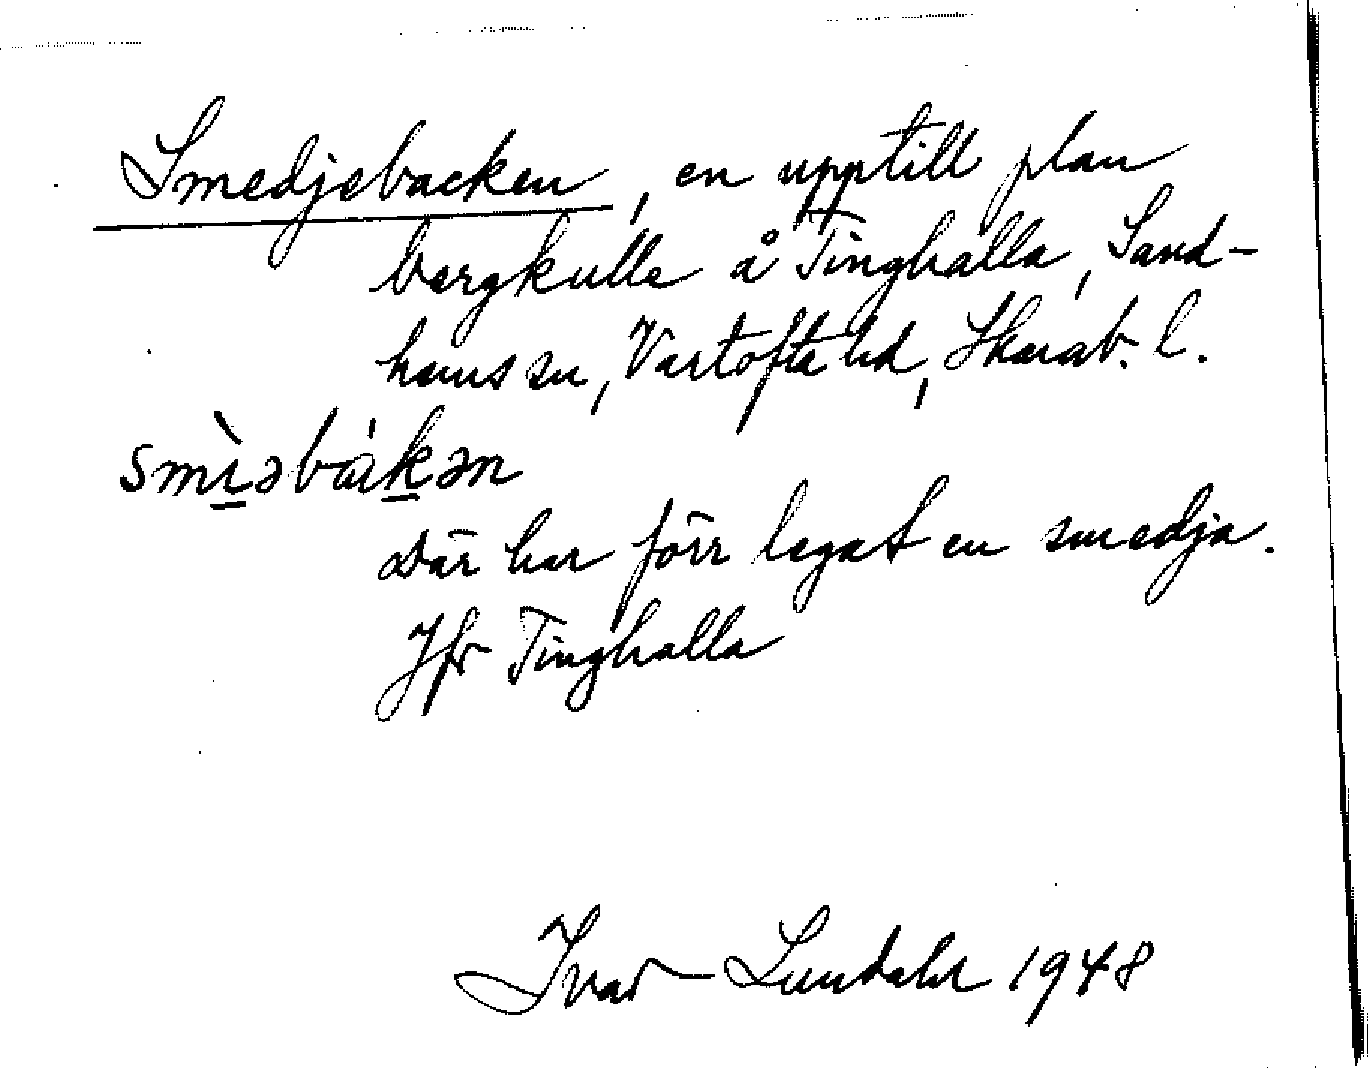 Smedjebacken, en upptill plan
bergkulle å Tinghalla, Sand-
hems sn, Vartofta hd, Skarab. l.
smìəbákən
Där har förr legat en smedja.
Jfr Tinghalla
Ivar Lundahl 1948